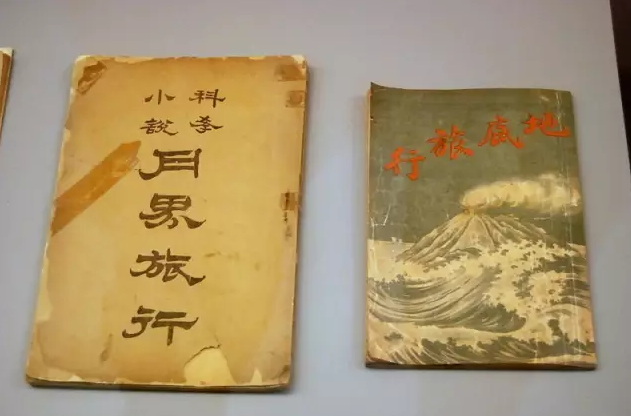 科斈
小說
月界旅行
地底旅行